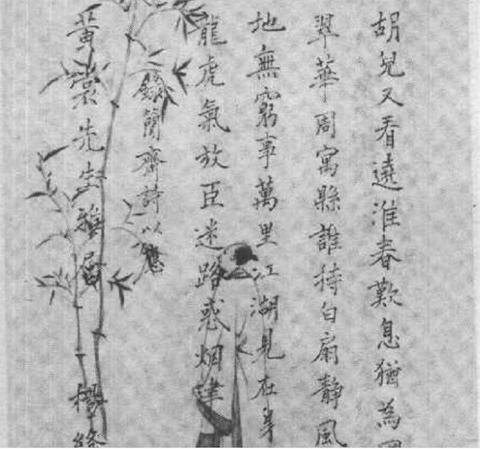 胡兒又看遶淮春歎息猶為
翠華周寓縣誰持白扇靜風
地無窮事萬里江湖見在身
龍虎氣放臣迷路惑烟津
錄簡齋詩以應
黃裳先生雅屬 楊絳